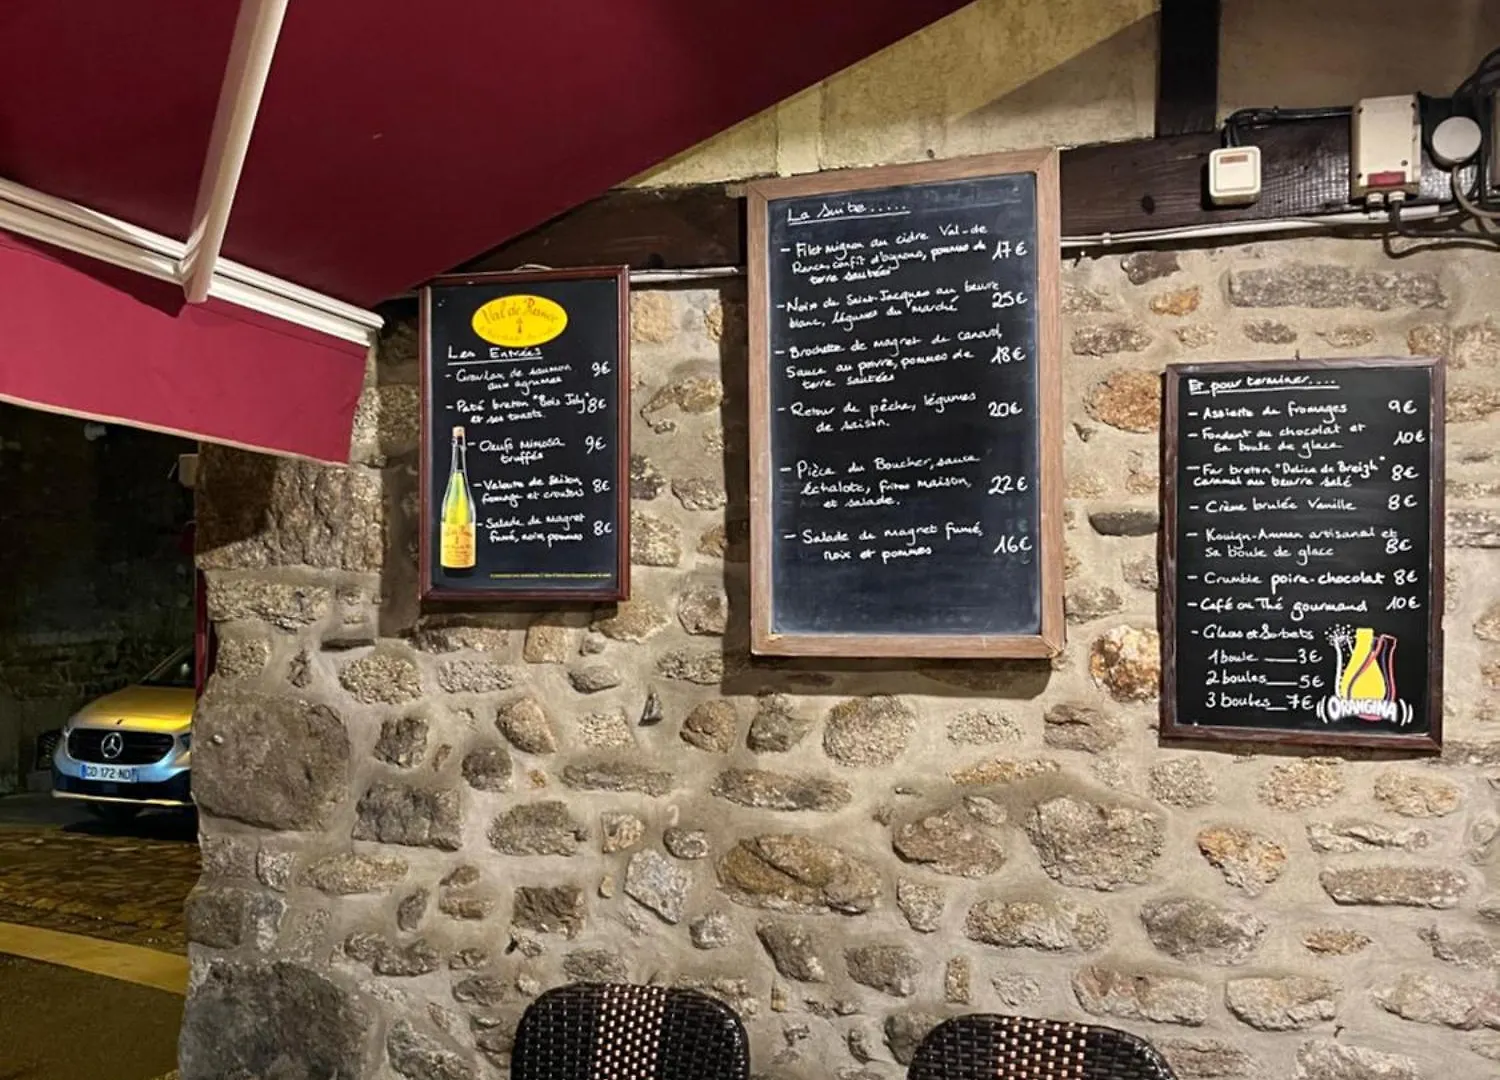 Val de Rance
Les Entrées
- Gravlax de saumon
aux agrumes 9€
- Paté breton "Bois Joly"
et ses toasts. 8€
- Oeufs mimosa
truffés 9€
- Velouté de
fromage et croutons 8€
- Salade de magret
fumé, noix, pommes 8€
La suite.....
- Filet mignon au cidre Val-de
Rance, confit d'oignons, pommes de
terre sautées 17€
- Noix de Saint-Jacques au beurre
blanc, légumes du marché 25€
- Brochette de magret de canard,
Sauce au poivre, pommes de
terre sautées 18€
- Retour de pêche, légumes
de saison. 20€
- Pièce du Boucher, sauce
échalote, frites maison,
et salade. 22€
- Salade de magret fumé,
noix et pommes 16€
Et pour terminer....
- Assiette de fromages 9€
- Fondant au chocolat et
sa boule de glace 10€
- Far breton "Délice de Breizh"
caramel au beurre salé 8€
- Crème brulée Vanille 8€
- Kouign-Amman artisanal et
sa boule de glace 8€
- Crumble poire-chocolat 8€
- Café ou Thé gourmand 10€
- Glaces et Sorbets
1 boule ___ 3€
2 boules ___ 5€
3 boules __ 7€
ORANGINA
CD 172 ND